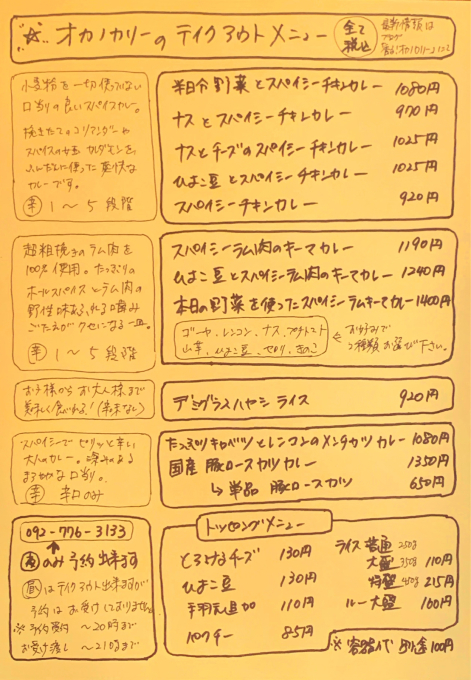 オカノカリーの テイクアウトメニュー
全て
税込
最新情報は
ブログ
小麦粉を一切使っていない
口当りの良いスパイスカレー。
挽きたてのコリアンダーや
スパイスの女王 カルダモンを
ふんだんに使った爽快な
カレーです。
辛 1〜5段階
半日分野菜とスパイシーチキンカレー 1080円
ナスとスパイシーチキンカレー 970円
ナスとチーズのスパイシーチキンカレー 1025円
ひよこ豆とスパイシーチキンカレー 1025円
スパイシーチキンカレー 920円
超粗挽きのラム肉を
100%使用。たっぷりの
ホールスパイスとラム肉の
野性味あふれる噛み
ごたえがクセになる一皿。
辛 1〜5段階
スパイシーラム肉のキーマカレー 1190円
ひよこ豆とスパイシーラム肉のキーマカレー 1240円
本日の野菜を使ったスパイシーラムキーマカレー 1400円
ゴーヤ、レンコン、ナス、プチトマト
山芋、ひよこ豆、セロリ、きのこ
お好みで
2種類お選び下さい。
お子様からお大人様まで
美味しく食べれる!(辛味なし)
デミグラスハヤシライス 920円
スパイシーでピリッと辛い
大人のカレー。深みのある
まろやかな口当り。
辛 辛口のみ
たっぷりキャベツとレンコンのメンチカツカレー 1080円
国産 豚ロースカツカレー 1350円
↳ 単品 豚ロースカツ 650円
092-776-3133
夜のみ予約出来ます
昼はテイクアウト出来ますが
予約はお受けしておりません
※予約受付 〜20時まで
お受け渡し 〜21時まで
トッピングメニュー
とろけるチーズ 130円
ひよこ豆 130円
手羽元追加 110円
パクチー 85円
ライス 普通 250g
大盛 350g 110円
特盛 450g 215円
ルー大盛 160円
※容器代 別途100円